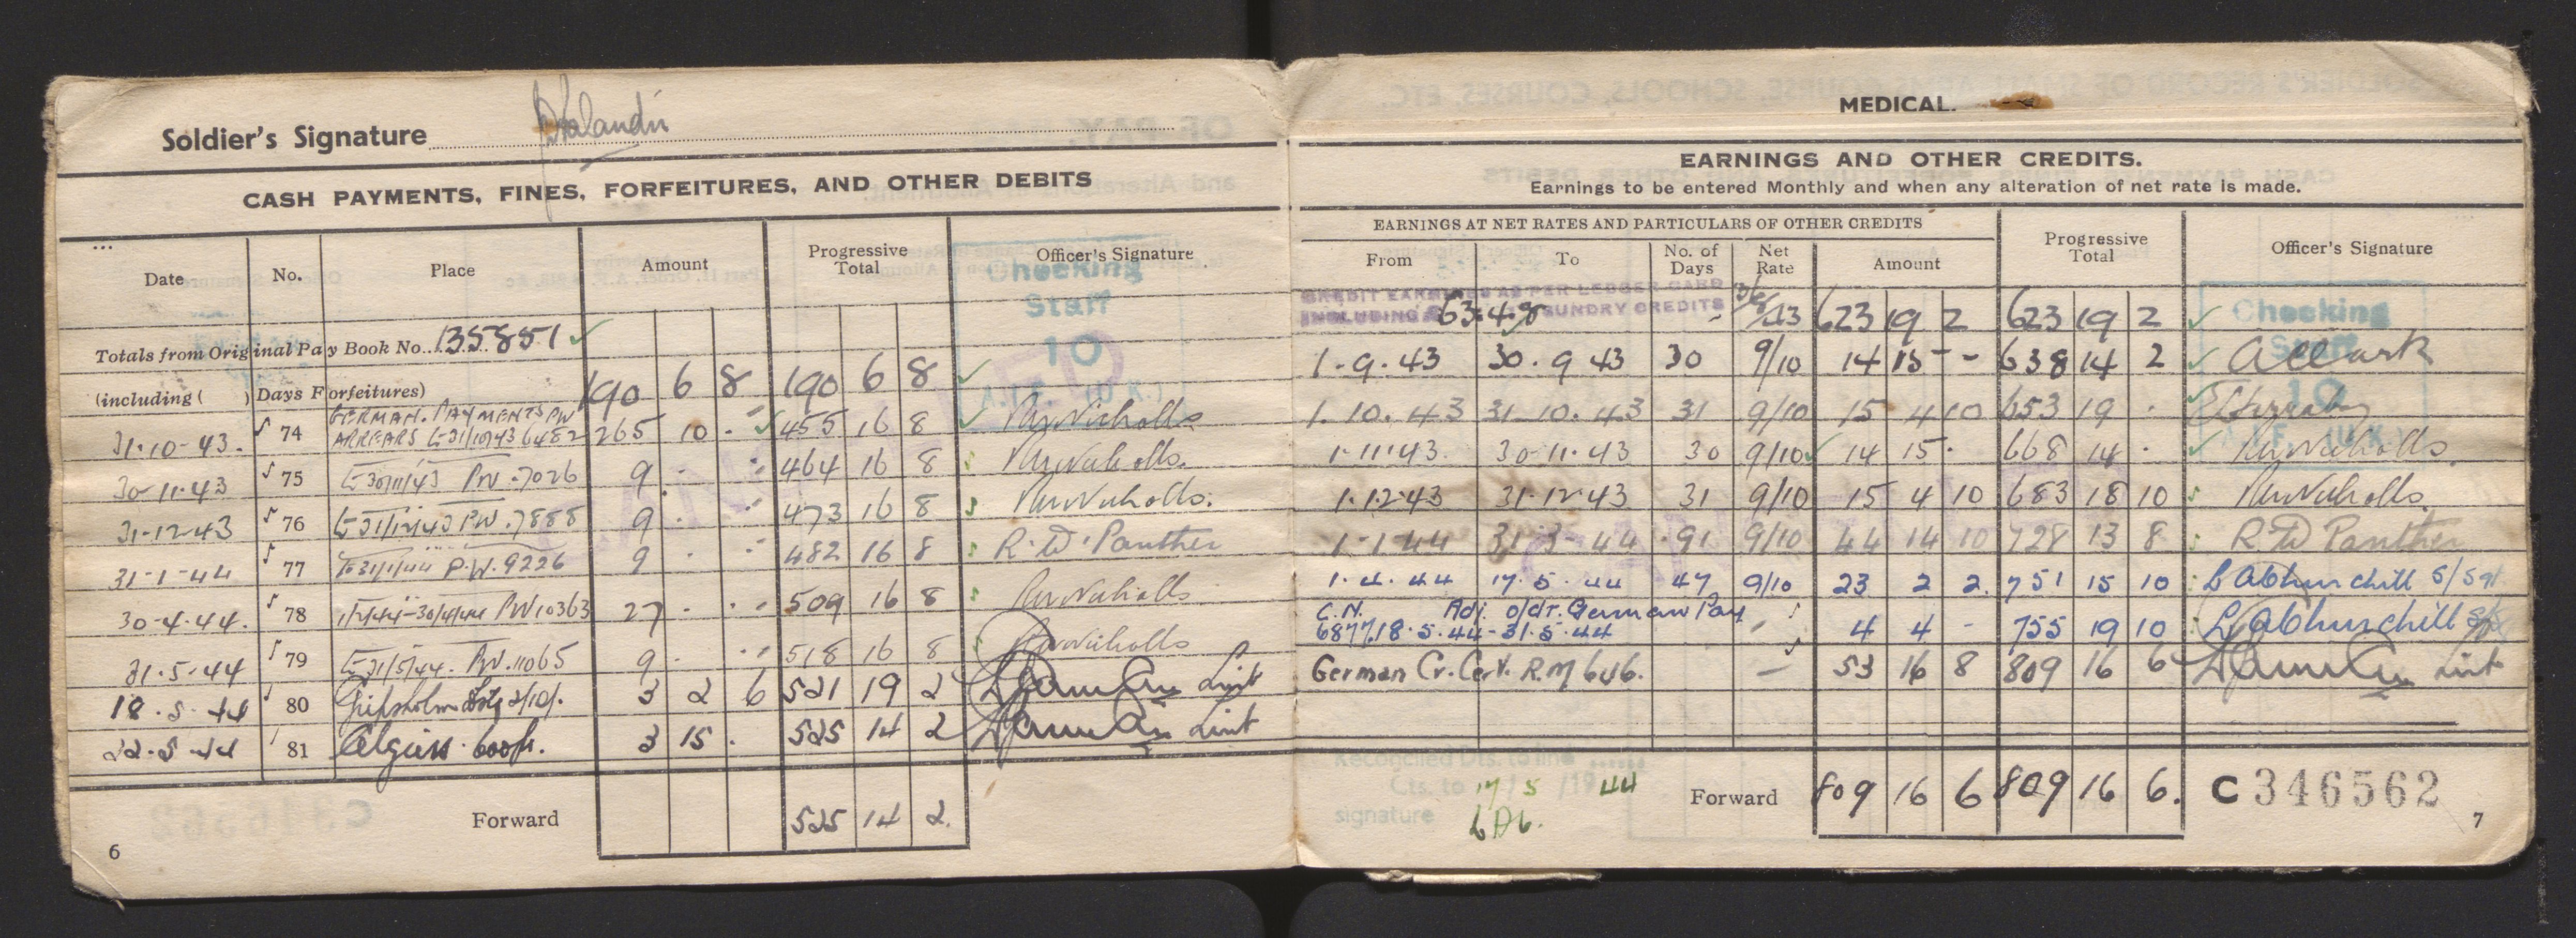 Soldier's Signature
CASH PAYMENTS, FINES, FORFEITURES, AND OTHER DEBITS
Date No. Place Amount Progressive Total Officer's Signature
Checking Staff 10
Totals from Original Pay Book No. 135851
(including ( ) Days Forfeitures) 190 6 8 190 6 8
GERMAN. PAYMENTS PW
31-10-43. 74 ARREARS 31/10/43 6482 265 10 - 455 16 8 Nicholls
30-11-43 75 30/11/43 PW.7026 9 . . 464 16 8 Nicholls.
31-12-43 76 31/12/43 PW.7888 9 . . 473 16 8 Nicholls.
31-1-44 77 31/1/44 P.W. 9226 9 . . 482 16 8 R.W. Panther
30-4-44. 78 1/2/44-30/4/44 PW10363 27 . . 509 16 8 Nicholls
31.5.44 79 31/5/44. PW.11065 9 . . 518 16 8 Nicholls
18.5.44 80 Gripsholm 3 2 6 521 19 2 Lieut
22.5.44 81 Algiers. 600fr. 3 15 . 525 14 2 Lieut
Forward 525 14 2.
6
MEDICAL.
EARNINGS AND OTHER CREDITS.
Earnings to be entered Monthly and when any alteration of net rate is made.
EARNINGS AT NET RATES AND PARTICULARS OF OTHER CREDITS
From To No. of Days Net Rate Amount Progressive Total Officer's Signature
CREDIT EARNINGS AS PER LEDGER CARD
INCLUDING 63.4.8 SUNDRY CREDITS - 623 19 2 623 19 2
Checking Staff 10
1.9.43 30.9 43 30 9/10 14 15 - 638 14 2
1.10.43 31.10.43 31 9/10 15 4 10 653 19 .
1-11-43. 30-11-43 30 9/10 14 15 . 668 14 . Nicholls.
1-12-43 31-12-43 31 9/10 15 4 10 683 18 10 Nicholls.
1-1-44 31-3-44 91 9/10 44 14 10 728 13 8 R.W Panther
1.4.44 17.5.44 47 9/10 23 2 2. 751 15 10 Churchill S/Sgt
C.N. Adj. o/dr. German Pay
6877 18.5.44-31.5.44 - 4 4 - 755 19 10 Churchill
German Cr. Cert. R.M 646. - 53 16 8 809 16 6 Lieut
Reconciled Dts. to line ......
Cts. to 17/5/1944
signature
Forward 809 16 6 809 16 6.
C346562
7